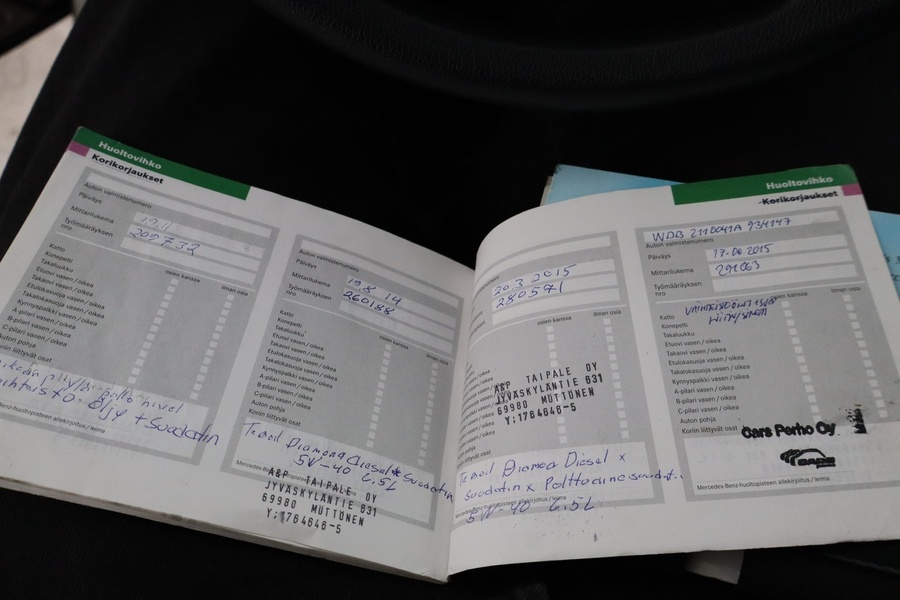 Huoltovihko
Korikorjaukset
Auton valmistenumero
Päiväys
19.1
Mittarilukema
209732
Työmääräyksen
nro
osien kanssa
ilman osia
Katto
Konepelti
Takaluukku
Etuovi vasen / oikea
Takaovi vasen / oikea
Etulokasuoja vasen / oikea
Takalokasuoja vasen / oikea
Kynnyspalkki vasen / oikea
A-pilari vasen / oikea
B-pilari vasen / oikea
C-pilari vasen / oikea
Auton pohja
Koriin liittyvät osat
pallo nivel
Öljy + Suodatin
Benz-huoltopisteen allekirjoitus / leima
Auton valmistenumero
Päiväys
19.8 14
Mittarilukema
260188
Työmääräyksen
nro
osien kanssa
ilman osia
Katto
Konepelti
Takaluukku
Etuovi vasen / oikea
Takaovi vasen / oikea
Etulokasuoja vasen / oikea
Takalokasuoja vasen / oikea
Kynnyspalkki vasen / oikea
A-pilari vasen / oikea
B-pilari vasen / oikea
C-pilari vasen / oikea
Auton pohja
Koriin liittyvät osat
Teboil Diamond Diesel x Suodatin
5W-40 6.5L
Mercedes-Benz-huoltopisteen allekirjoitus / leima
A&P TAIPALE OY
JYVÄSKYLÄNTIE 631
69980 MÖTTÖNEN
Y;1764646-5
valmistenumero
20.3 2015
280571
osien kanssa
ilman osia
vasen / oikea
A&P TAIPALE OY
JYVÄSKYLÄNTIE 631
69980 MÖTTÖNEN
Y;1764646-5
Teboil Diamond Diesel x
Suodatin x Polttoainesuodat..
-Benz-huoltopisteen allekirjoitus / leima
5W-40 6.5L
Huoltovihko
Korikorjaukset
WDB 2110041A 934147
Auton valmistenumero
Päiväys
17.06 2015
Mittarilukema
291063
Työmääräyksen
nro
osien kanssa
ilman osia
Katto
Konepelti
Takaluukku
Etuovi vasen / oikea
Takaovi vasen / oikea
Etulokasuoja vasen / oikea
Takalokasuoja vasen / oikea
Kynnyspalkki vasen / oikea
A-pilari vasen / oikea
B-pilari vasen / oikea
C-pilari vasen / oikea
Auton pohja
Koriin liittyvät osat
Cars Perho Oy
Mercedes-Benz-huoltopisteen allekirjoitus / leima